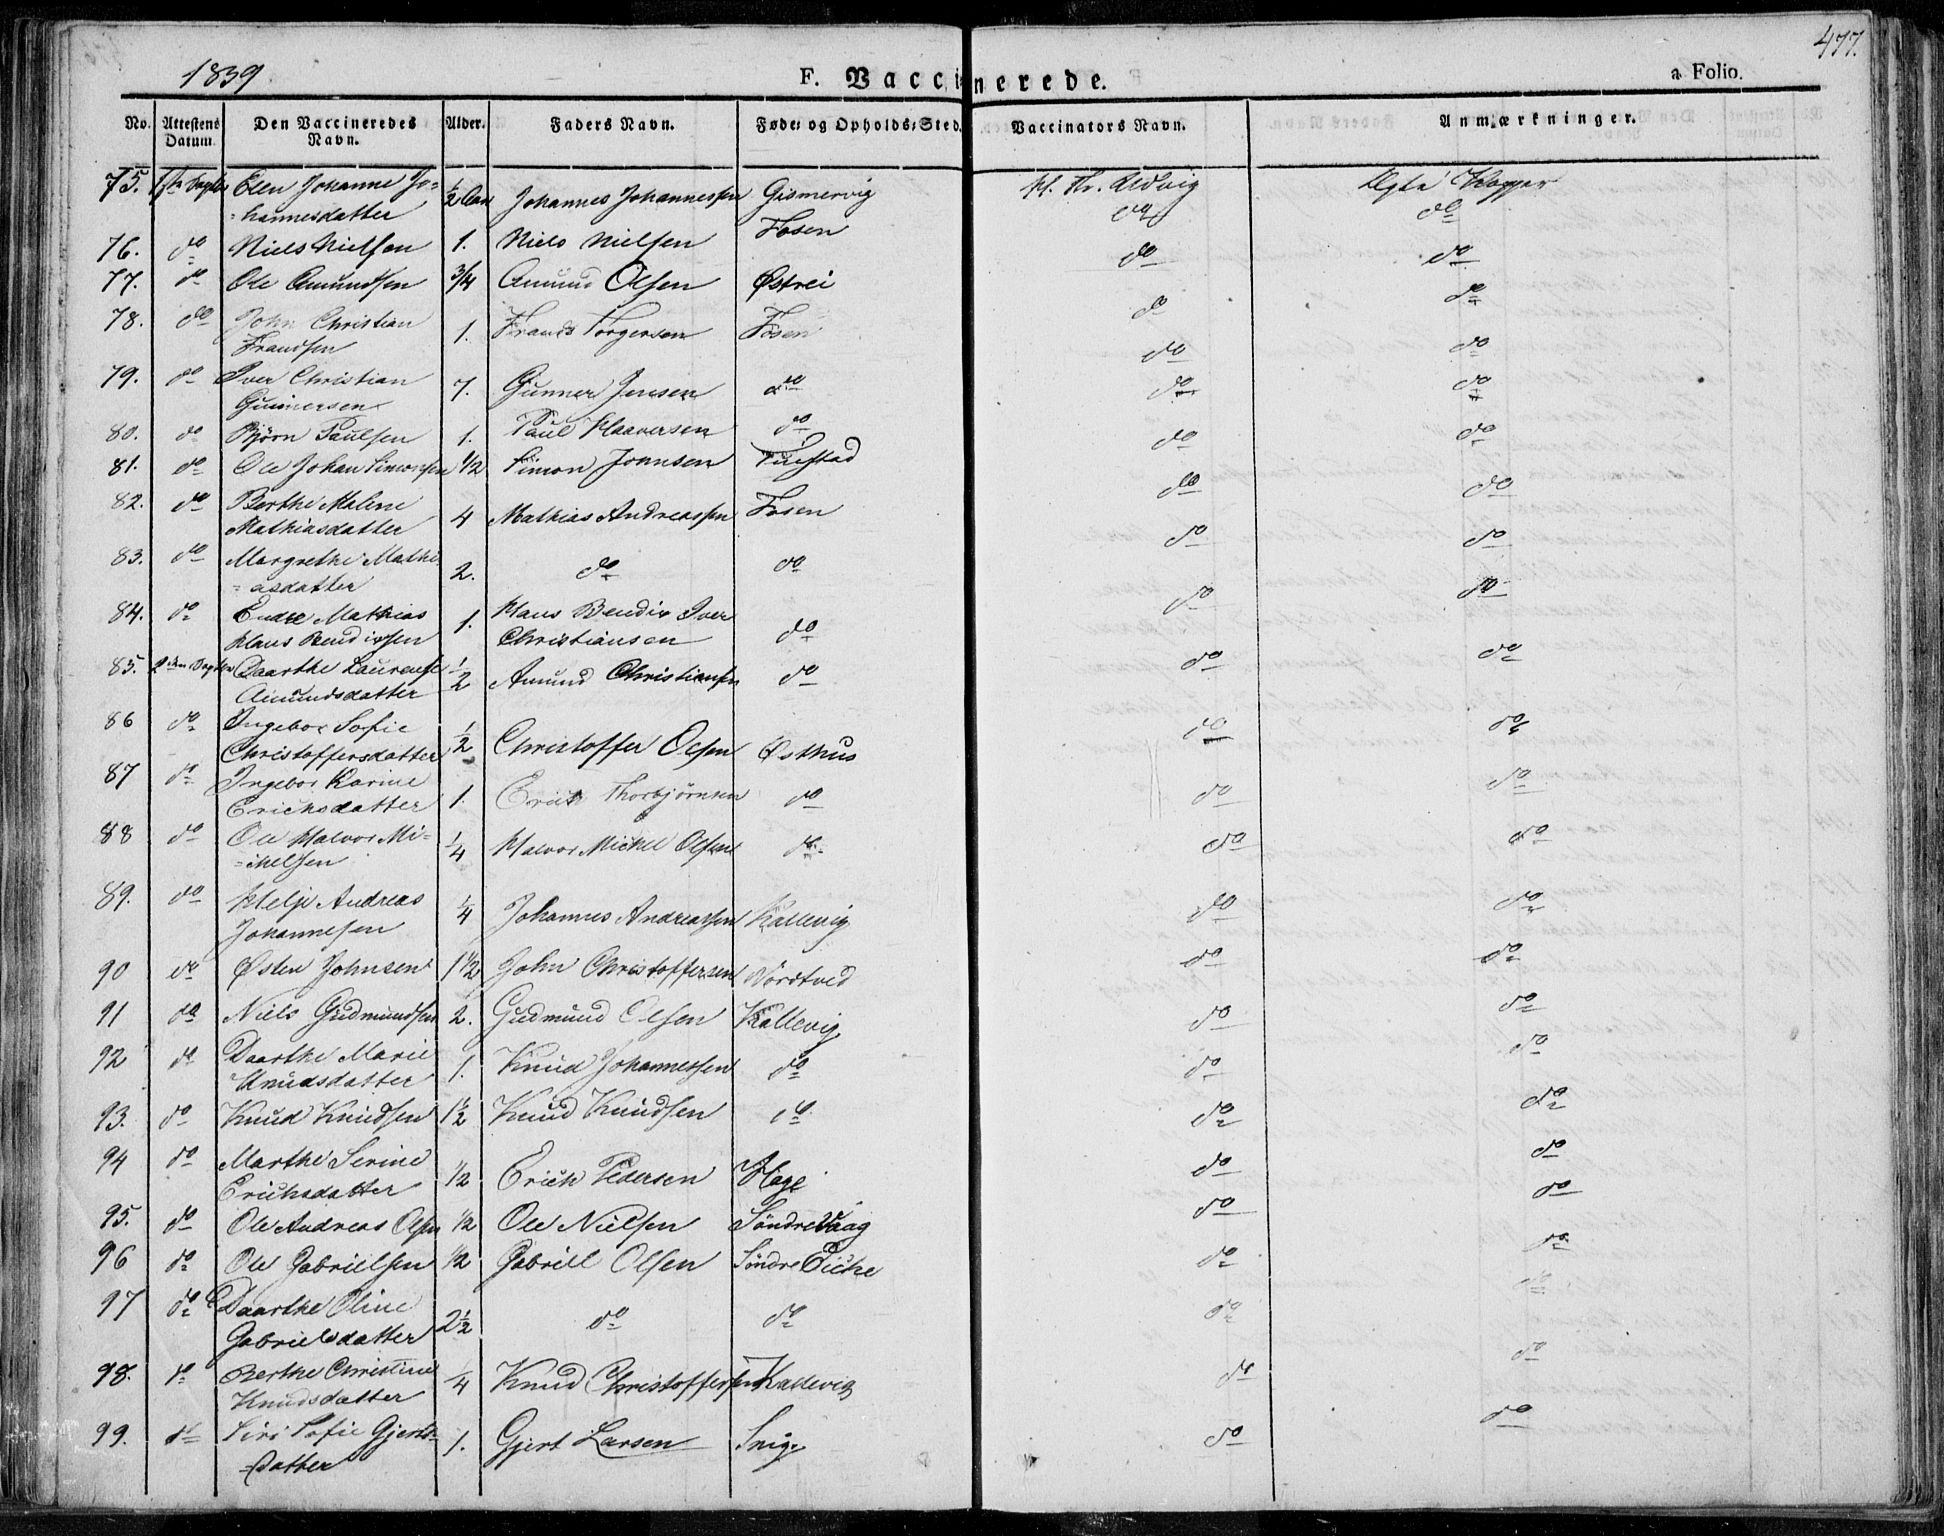 1839
F. Vaccinerede.
a Folio.
477.
No. Attestens Datum. Den Vaccineredes Navn. Alder. Faders Navn. Føde- og Opholds-Sted. Vaccinators Navn. Anmærkninger.
75. Elen Johanne Jo- ½ Aar Johannes Johannessen Gismervig Ægte Kopper
-hannesdatter do do
76. do Niels Nielsen 1. Niels Nielsen Fosen do do
77. do Ole Amundsen 3/4 Amund Olsen Østrei do do
78. do John Christian
Frandsen 1. Frands Torgersen Fosen do do
79. do Iver Christian
Gunnersen 7. Gunner Jensen do do do
80. do Bjørn Paulsen 1. Paul Haaversen do do do
81. do Ole Johan Simonsen 1/2 Simon Johnsen do do
82. do Berthe Malene
Mathiasdatter 4 Mathias Andreassen Fosen do do
83. do Margrethe Mathi-
-asdatter 2. do do do do
84. do Endre Mathias Hans Bendix Iver
Hans Bendixsen 1. Christiansen do do do
85. Daarthe Laurense
Amundsdatter ½ Amund Christiansen do do do
86 do Ingebor Sofie
Christoffersdatter ½ Christoffer Olsen Østhus do do
87 do Ingebor Karine
Erichsdatter 1. Erich Thorbjørnsen do do do
88 do Ole Halvor Mi-
-chelsen ¼ Halvor Michel Olsen do do do
89. do Helje Andreas
Johannesen ¼ Johannes Andreassen Kallevig do do
90 do Østen Johnsen 1 1/2 John Christoffersen Nordtved do do
91 do Niels Gudmundsen 2. Gudmund Olsen Kallevig do do
92 do Daarthe Marie
Knudsdatter 1. Knud Johannessen do do do
93. do Knud Knudsen 1½ Knud Knudsen do do do
94 do Marthe Serine
Erichsdatter 1/2 Erich Pedersen Hage do do
95. do Ole Andreas Olsen 1/2 Ole Nielsen Søndre Vaag do do
96 do Ole Gabrielsen 1/2 Gabriel Olsen Søndre Eiche do do
97 do Daarthe Oline
Gabrielsdatter 2½ do do do do
98. do Berthe Christine
Knudsdatter 1/4 Knud Christoffersen Kallevig do do
99. do Siri Sofie Gjerts-
-datter 1. Gjert Larsen Snig do do